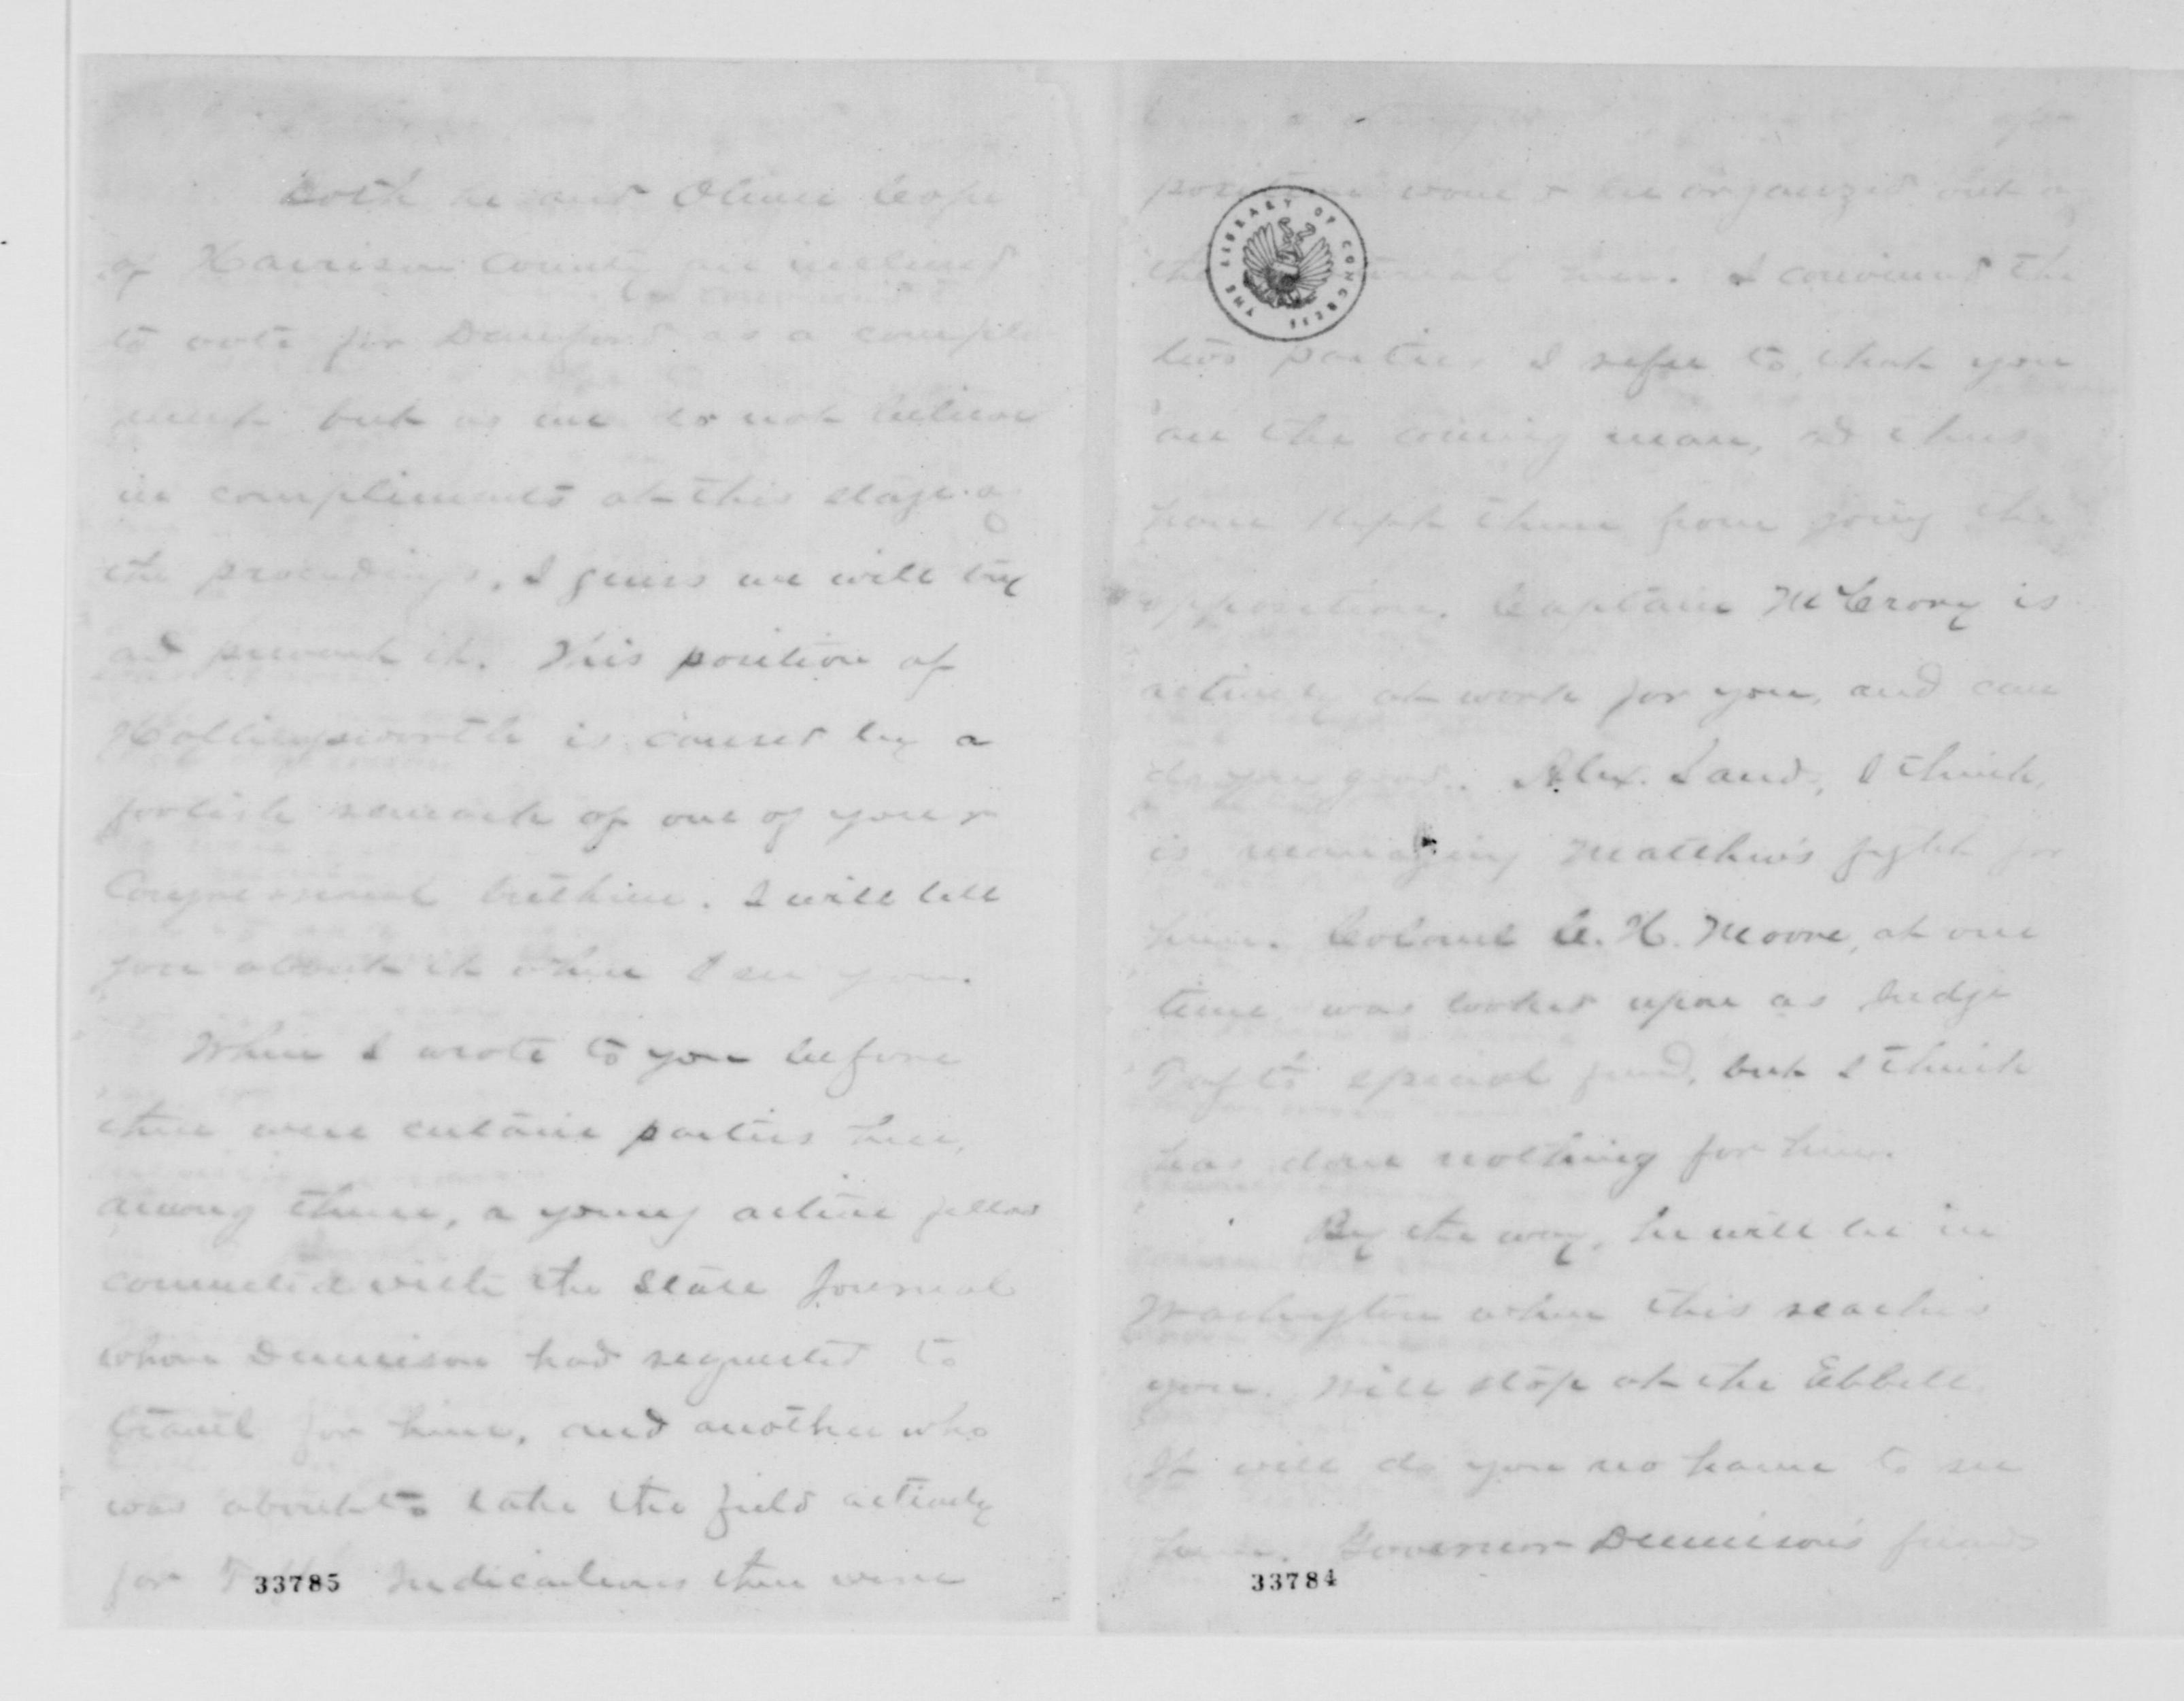 Both he and Oliver Cope
of Harrison County are inclined
to vote for Danford as a compli
ment but as we do not believe
in compliments at this stage of
the proceedings, I guess we will try
ad prevent it. This position of
Hollingsworth is caused by a
foolish remark of one of your
Congressional brethren. I will tell
you about it when I see you.
When I wrote to you before
there were certain parties here,
among them, a young active fellow
connected with the State Journal
whom Dennison had requested to
travel for him, and another who
was about to take the field actively
for Indications then were
33785
position would be organized out of
the men. I convinced the
two parties I refer to, that you
are the coming man, ad thus
have kept them from joing the
opposition. Captain McCrory is
actively at work for you, and can
do you good. Alex. Sand, I think,
is managing Matthew's fight for
him. Colonel C. H. Moore, at one
time was looked upon as Judge
Taft's special friend, but I think
has done nothing for him.
By the way, he will be in
Washington when this reaches
you. Will stop at the Ebbett
It will do you no harm to see
him. Governor Dennison's friends
33784
THE LIBRARY OF CONGRESS